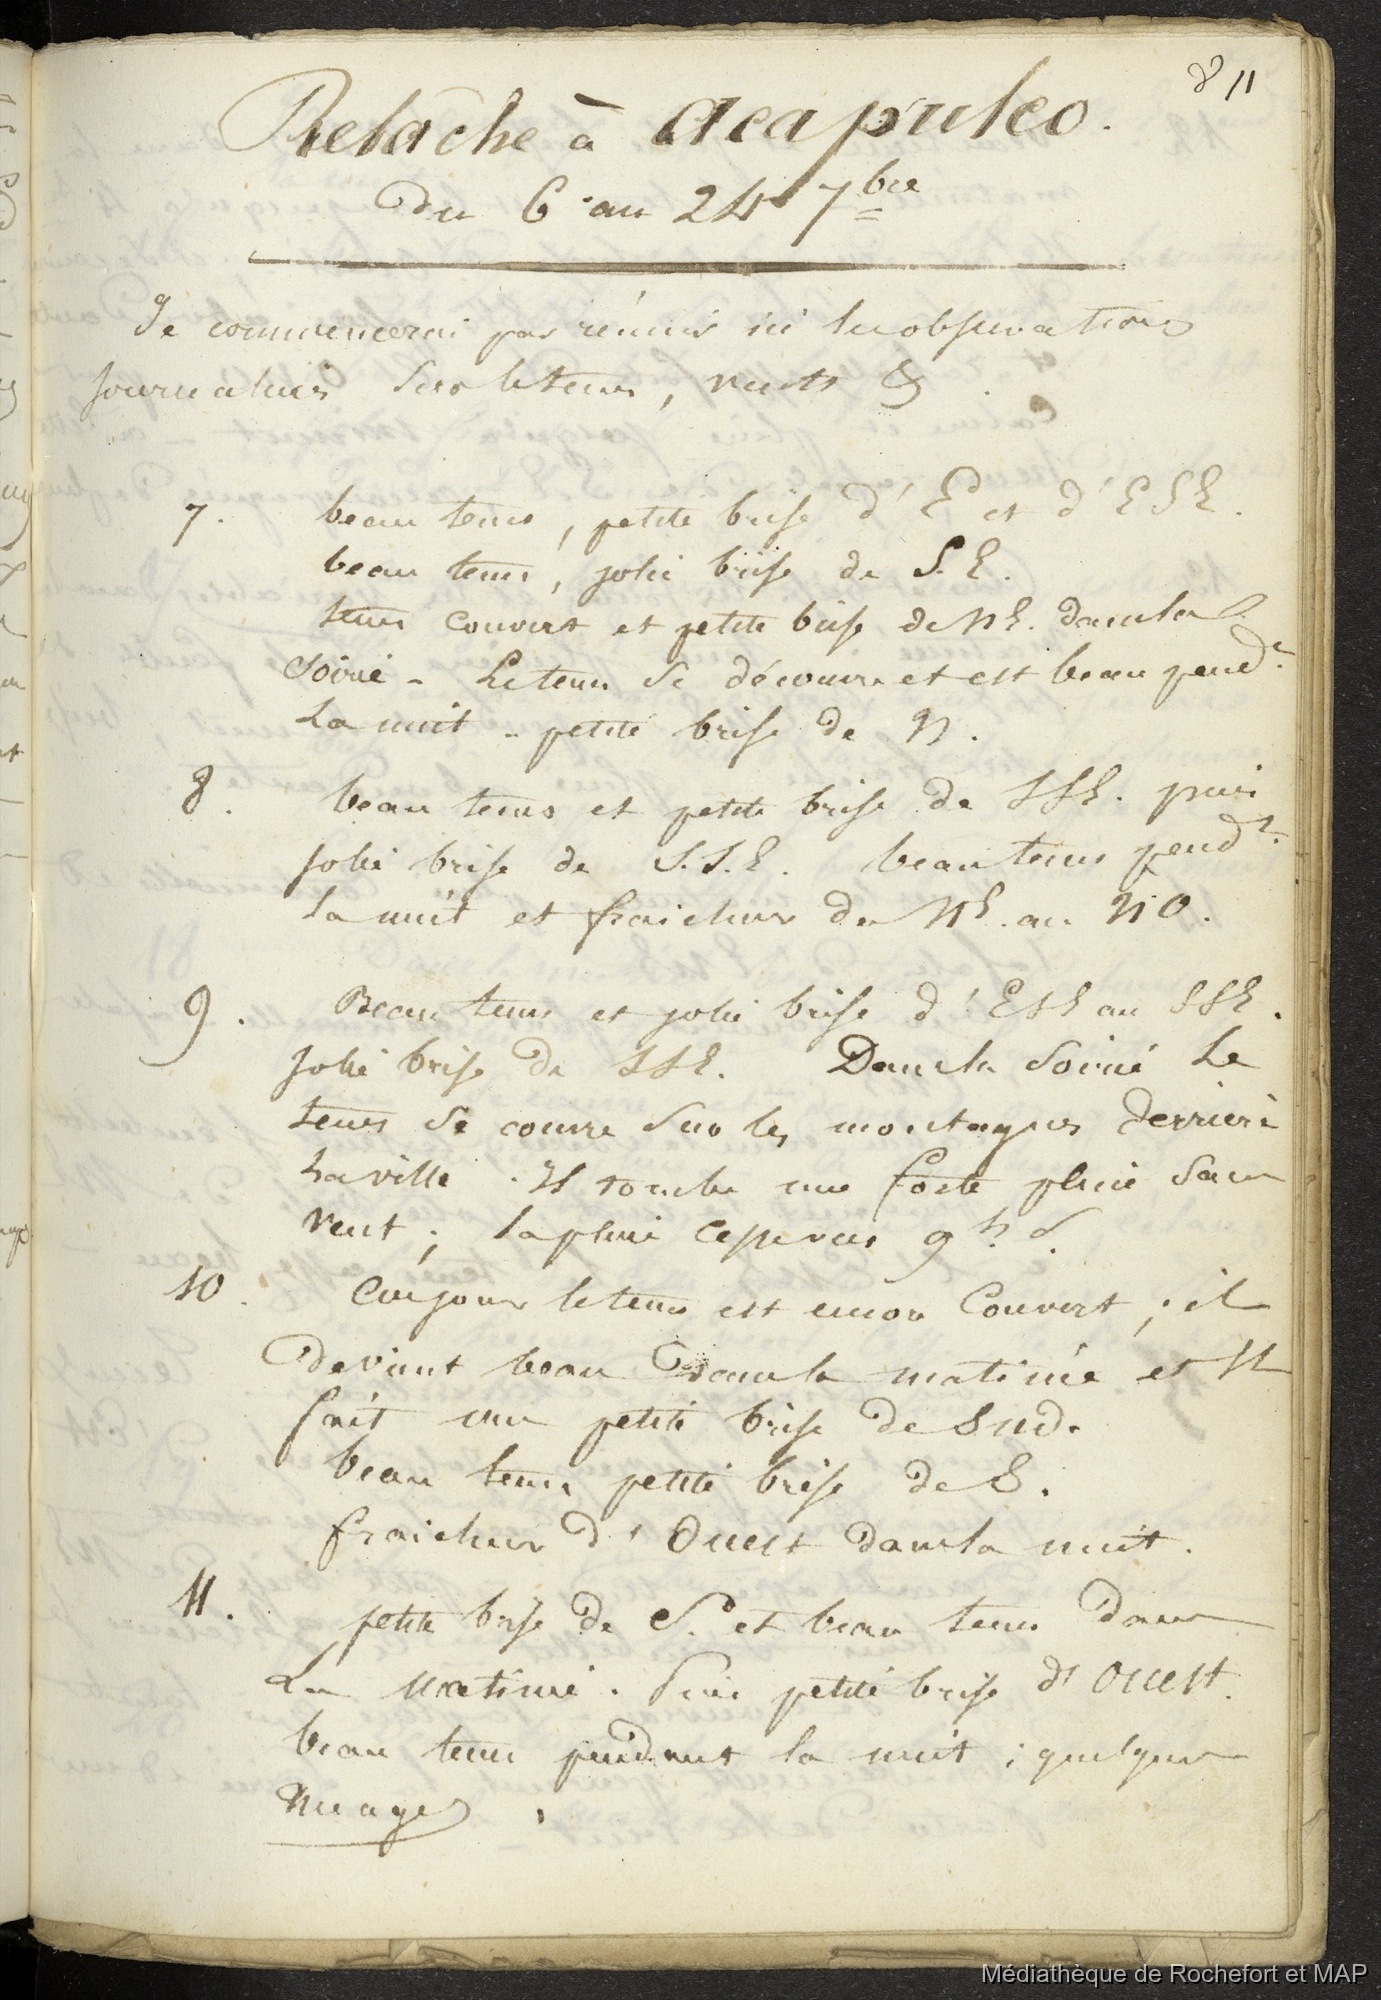 811
Relâche à Acapulco.
du 6 au 24 7bre
Je commencerai par réunir ici les observations
journalières sur le tems, vents &
7. beau tems, petite brise d'E et d'ESE.
beau tems, jolie brise de S.E.
tems couvert et petite brise de NE. dans la
soirée - Le tems se découvre et est beau pendt.
la nuit - petite brise de N.
8. beau tems et petite brise de SSE. puis
jolie brise de S.S.E. beau tems pendt.
la nuit et fraicheur du NE. au NO.
9. Beau tems et jolie brise d'ESE au SSE.
jolie brise de SSE. Dans la soirée le
tems se couvre sur les montagnes derriere
la ville. Il tombe une forte pluie sans
vent; la pluie cesse vers 9h. S.
10. Au jour le tems est encor couvert; il
devient beau dans la matinée et il
fait une petite brise de Sud.
beau tems petite brise de S.
fraicheur d'Ouest dans la nuit.
11. petite brise de S. et beau tems dans
la matinée. Puis petite brise d'Ouest.
beau tems pendant la nuit; quelques
nuages.
Médiathèque de Rochefort et MAP